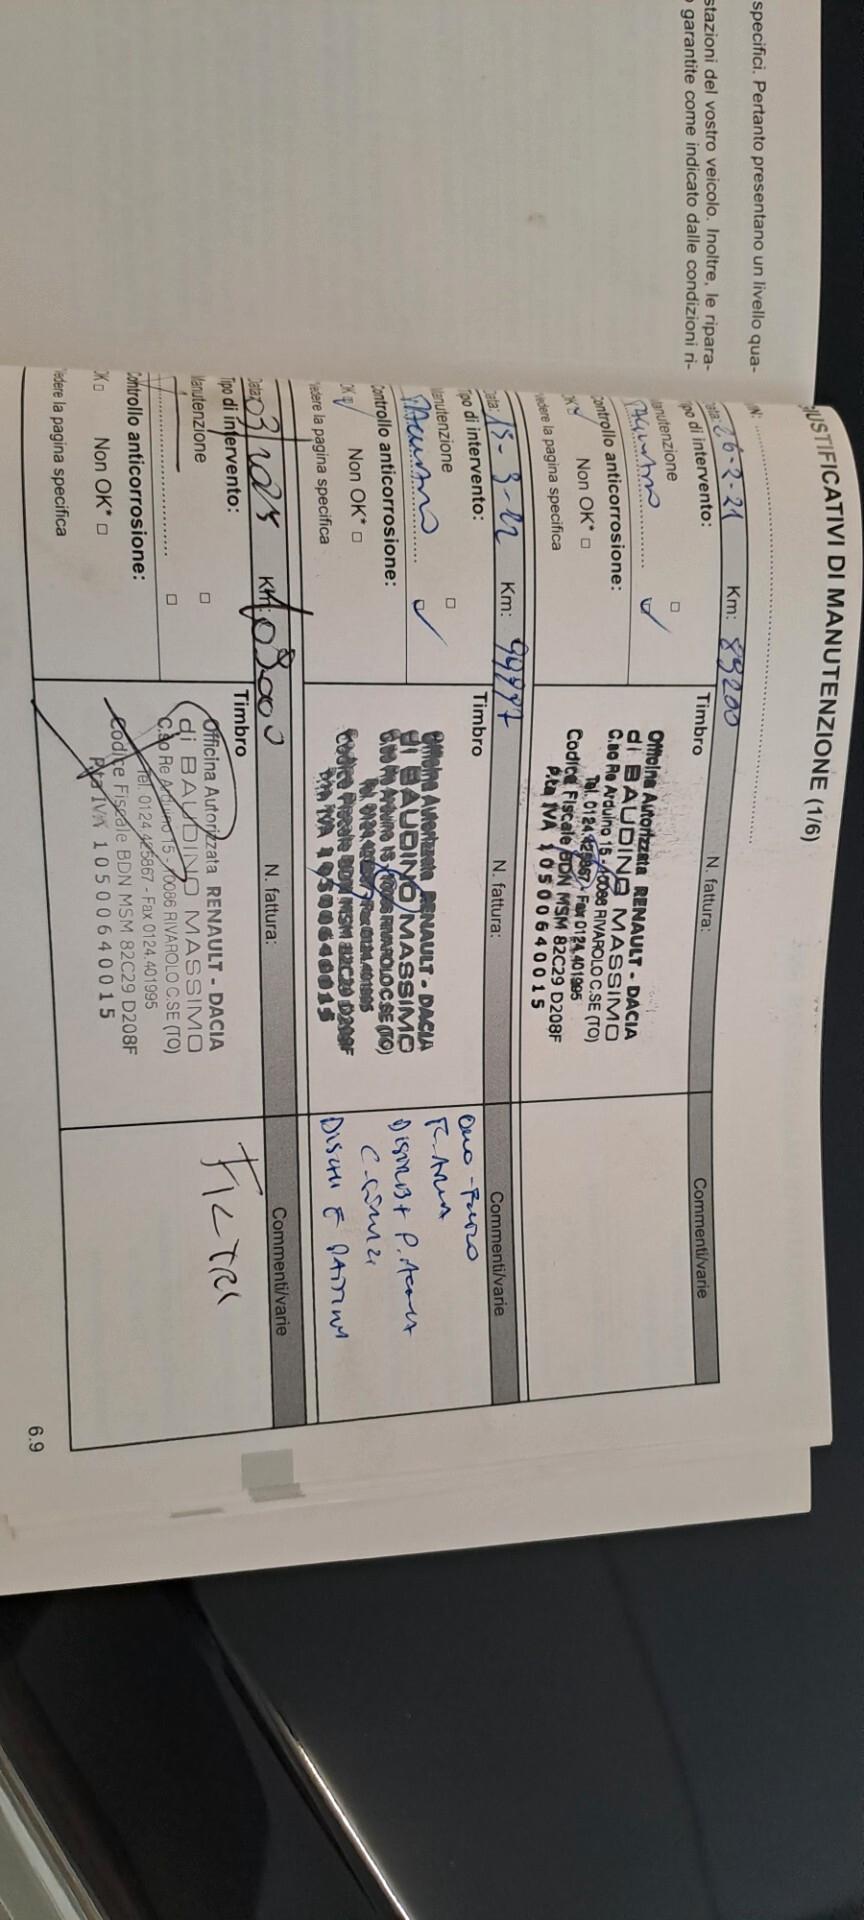 specifici. Pertanto presentano un livello qua-
stazioni del vostro veicolo. Inoltre, le ripara-
garantite come indicato dalle condizioni ri-
IUSTIFICATIVI DI MANUTENZIONE (1/6)
N: ..........
ata: 26-2-21 Km: 89200 N. fattura: Commenti/varie
ipo di intervento:
anutenzione □
Controllo anticorrosione:
OK Non OK* □
vedere la pagina specifica
Timbro
Officina Autorizzata RENAULT - DACIA
di BAUDINO MASSIMO
C.so Re Arduino 15 - 10086 RIVAROLO C.SE (TO)
Tel. 0124.425867 - Fax 0124.401995
Codice Fiscale BDN MSM 82C29 D208F
P.ta IVA 10500640015
Data: 15-3-22 Km: N. fattura: Commenti/varie
Tipo di intervento:
Manutenzione □
Controllo anticorrosione:
OK Non OK* □
vedere la pagina specifica
Timbro
Officina Autorizzata RENAULT - DACIA
di BAUDINO MASSIMO
C.so Re Arduino 15 - 10086 RIVAROLO C.SE (TO)
Tel. 0124.425867 - Fax 0124.401995
Codice Fiscale BDN MSM 82C29 D208F
P.ta IVA 10500640015
F. ARIA
DISTRIB + P. ACQUA
DISCHI E PATTINI
Data: Km: N. fattura: Commenti/varie
Tipo di intervento:
Manutenzione □
.......... □
Controllo anticorrosione:
OK □ Non OK* □
Vedere la pagina specifica
Timbro
Officina Autorizzata RENAULT - DACIA
di BAUDINO MASSIMO
C.so Re Arduino 15 - 10086 RIVAROLO C.SE (TO)
Tel. 0124.425867 - Fax 0124.401995
Codice Fiscale BDN MSM 82C29 D208F
P.ta IVA 10500640015
FILTRI
6.9